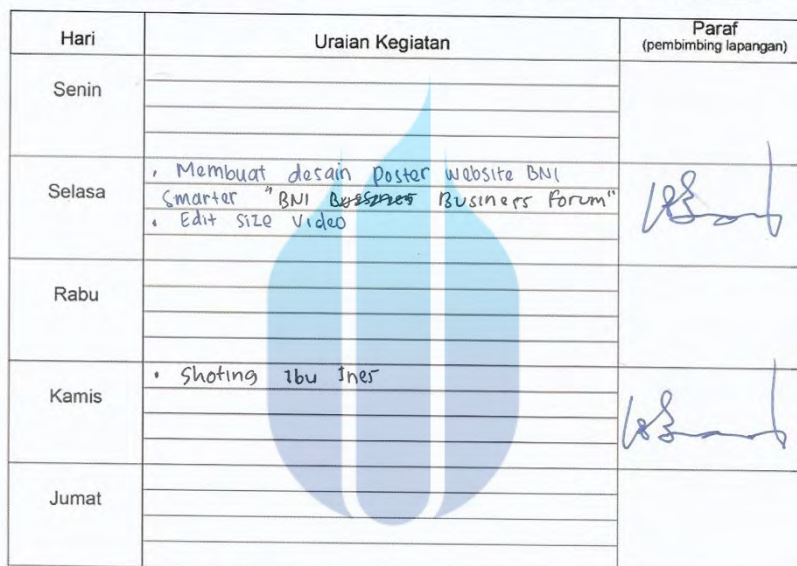 Hari Uraian Kegiatan Paraf
(pembimbing lapangan)
Senin
Selasa
• Membuat desain Poster website BNI
Smarter "BNI Business Forum"
• Edit size Video
Rabu
Kamis
• Shoting Ibu Ines
Jumat